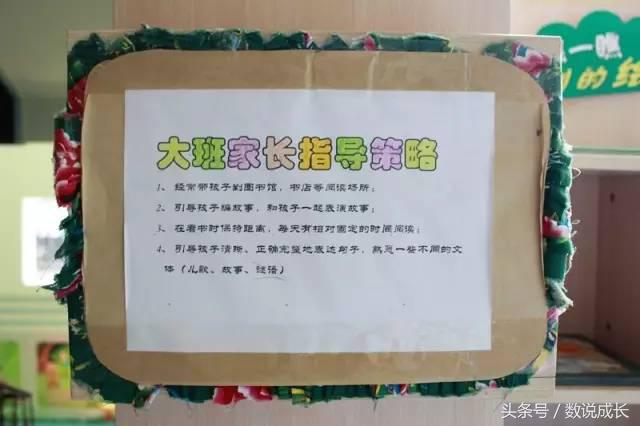 一瞧
的结
大班家长指导策略
1、经常带孩子到图书馆，书店等阅读场所；
2、引导孩子编故事，和孩子一起表演故事；
3、在看书时保持距离，每天有相对固定的时间阅读；
4、引导孩子清晰、正确完整地表达句子，熟悉一些不同的文
体（儿歌、故事、谜语）
头条号 / 数说成长